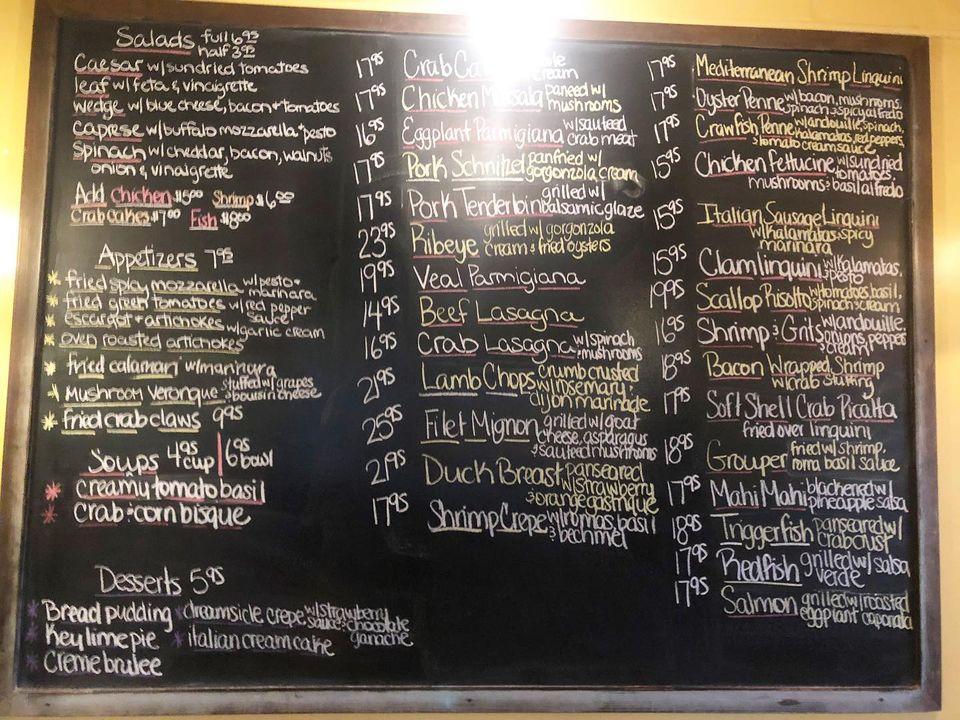 Salads full 6.95
half 3.95
Caesar w/sundried tomatoes
leaf w/feta & vinaigrette
wedge w/ blue cheese, bacon + tomatoes
caprese w/buffalo mozzarella + pesto
Spinach w/cheddar, bacon, walnuts
onion & vinaigrette
Add Chicken $5.00 Shrimp $6.00
Crabcakes $7.00 Fish $8.00
Appetizers 7.95
* fried splay mozzarella w/pesto +
marinara
* fried green tomatoes w/red pepper
sauce
* escargot + artichokes w/garlic cream
* oven roasted artichokes
* fried calamari w/marinara
* Mushroom Veronque stuffed w/grapes
& boursin cheese
* Fried crab claws 9.95
Soups 4.95 cup | 6.95 bowl
* creamy tomato basil
* Crab & corn bisque
Desserts 5.95
* Bread pudding
* Key lime pie
* Creme brulee
* dreamsicle crepe w/strawberry
sauce & chocolate
ganache
* italian cream cake
17.95 Crab
cream
17.95 Chicken paneed w/
mushrooms
16.95 Eggplant Parmigiana w/sauteed
crab meat
17.95 Pork Schnitzel panfried w/
gorgonzola cream
17.95 Pork Tenderloin grilled w/
balsamic glaze
23.95 Ribeye grilled w/ gorgonzola
cream & fried oysters
19.95 Veal Parmigiana
14.95 Beef Lasagna
16.95 Crab Lasagna w/spinach
& mushrooms
21.95 Lamb Chops crumb crusted
w/rosemary &
dijon marinade
25.95 Filet Mignon grilled w/goat
cheese, asparagus
& sauteed mushrooms
21.95 Duck Breast panseared
w/strawberry
& orange gastrique
17.95 Shrimp Crepe w/romas, basil
& bechmel
17.95 Mediterranean Shrimp Linguini
17.95 Oyster Penne w/bacon, mushrooms,
spinach, & spicy alfredo
17.95 Crawfish Penne w/andouille, spinach,
kalamatas, red peppers,
& tomato cream sauce
15.95 Chicken Fettucine w/sundried
tomatoes,
mushrooms & basil alfredo
15.95 Italian Sausage Linguini
w/kalamatas & spicy
marinara
15.95 Clam linguini w/kalamatas,
& pesto
19.95 Scallop Risotto w/tomatoes, basil,
spinach & cream
16.95 Shrimp & Grits w/andouille,
onions, peppers
& cream
18.95 Bacon Wrapped Shrimp
w/crab stuffing
17.95 Soft Shell Crab Picatta
fried over linguini
18.95 Grouper fried w/shrimp,
roma basil sauce
17.95 Mahi Mahi blackened w/
pineapple salsa
18.95 Triggerfish panseared w/
crab crust
17.95 Redfish grilled w/salsa
verde
17.95 Salmon grilled w/roasted
eggplant caponata